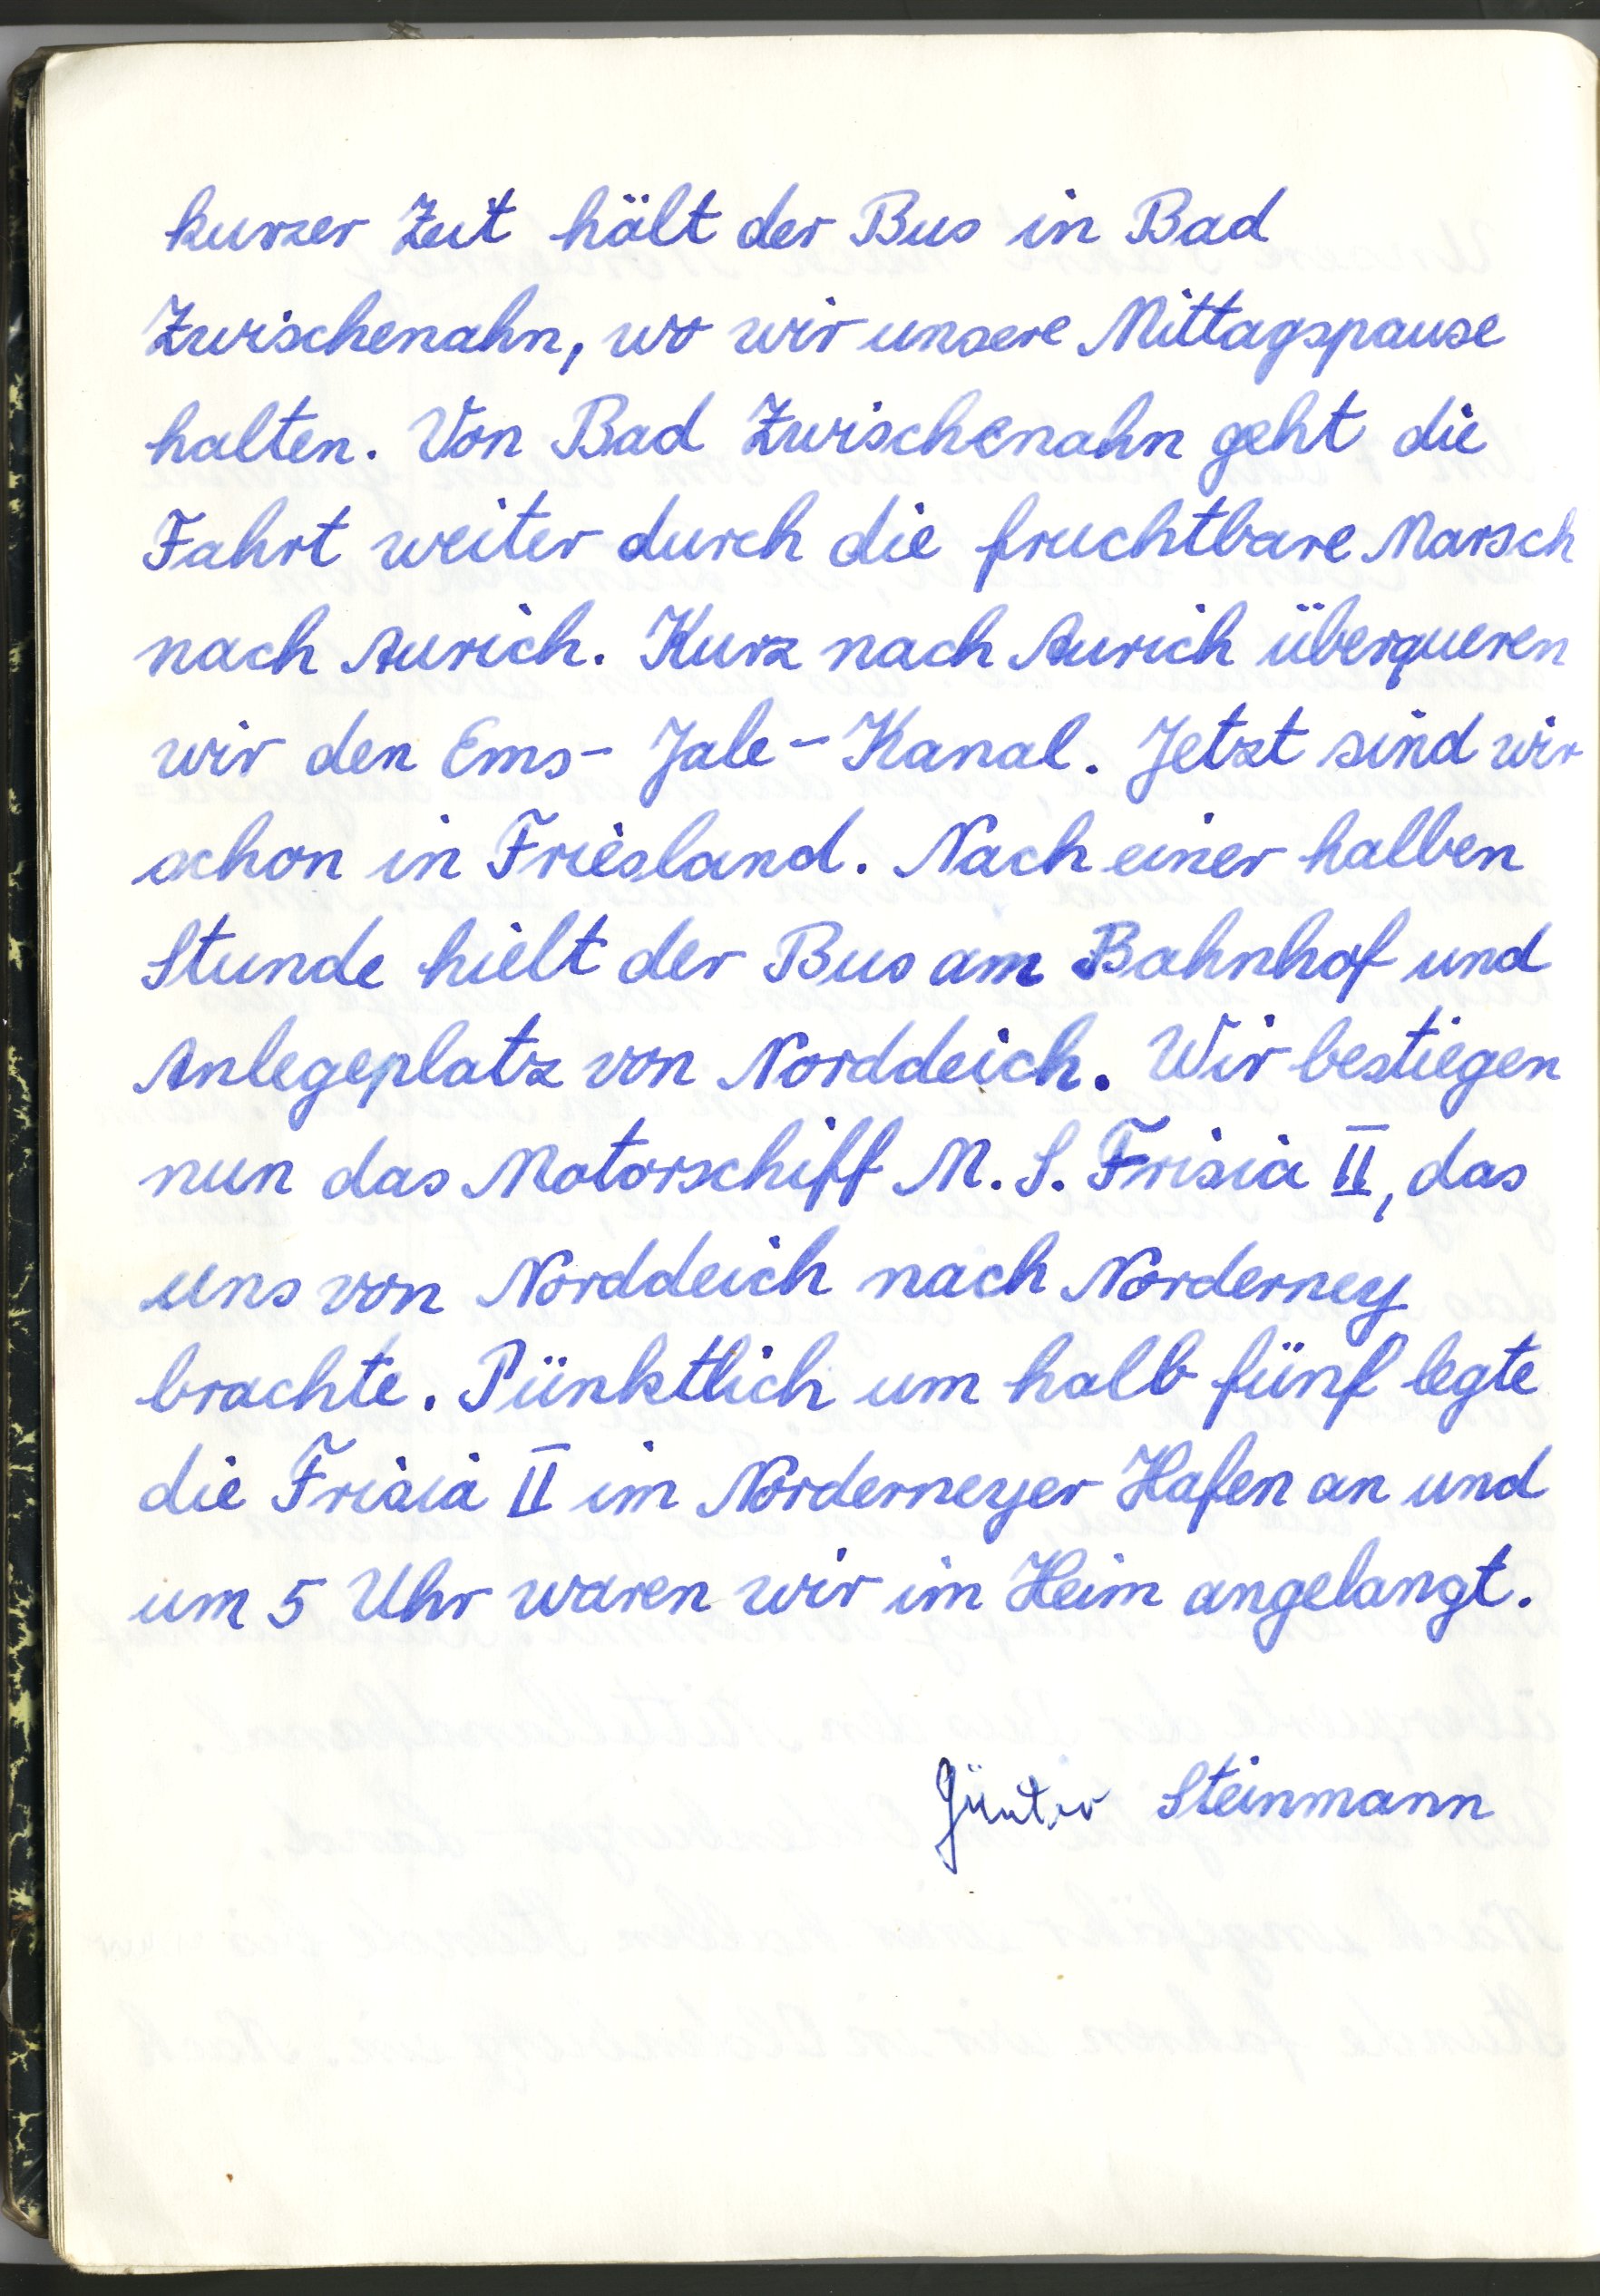 kurzer Zeit hält der Bus in Bad
Zwischenahn, wo wir unsere Mittagspause
halten. Von Bad Zwischenahn geht die
Fahrt weiter durch die fruchtbare Marsch
nach Aurich. Kurz nach Aurich überqueren
wir den Ems- Jale-Kanal. Jetzt sind wir
schon in Friesland. Nach einer halben
Stunde hielt der Bus am Bahnhof und
Anlegeplatz von Norddeich. Wir bestiegen
nun das Motorschiff M. S. Frisia II, das
uns von Norddeich nach Norderney
brachte. Pünktlich um halb fünf legte
die Frisia II im Norderneyer Hafen an und
um 5 Uhr waren wir im Heim angelangt.
Günter Steinmann